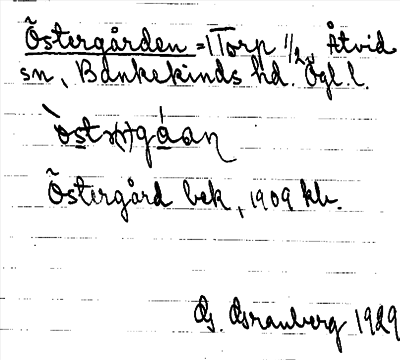 Östergården = 1 Torp 1/2, Åtvid
sn, Bankekinds hd. Ögl l.
Östergård bek, 1909 kb.
G. Granberg 1929